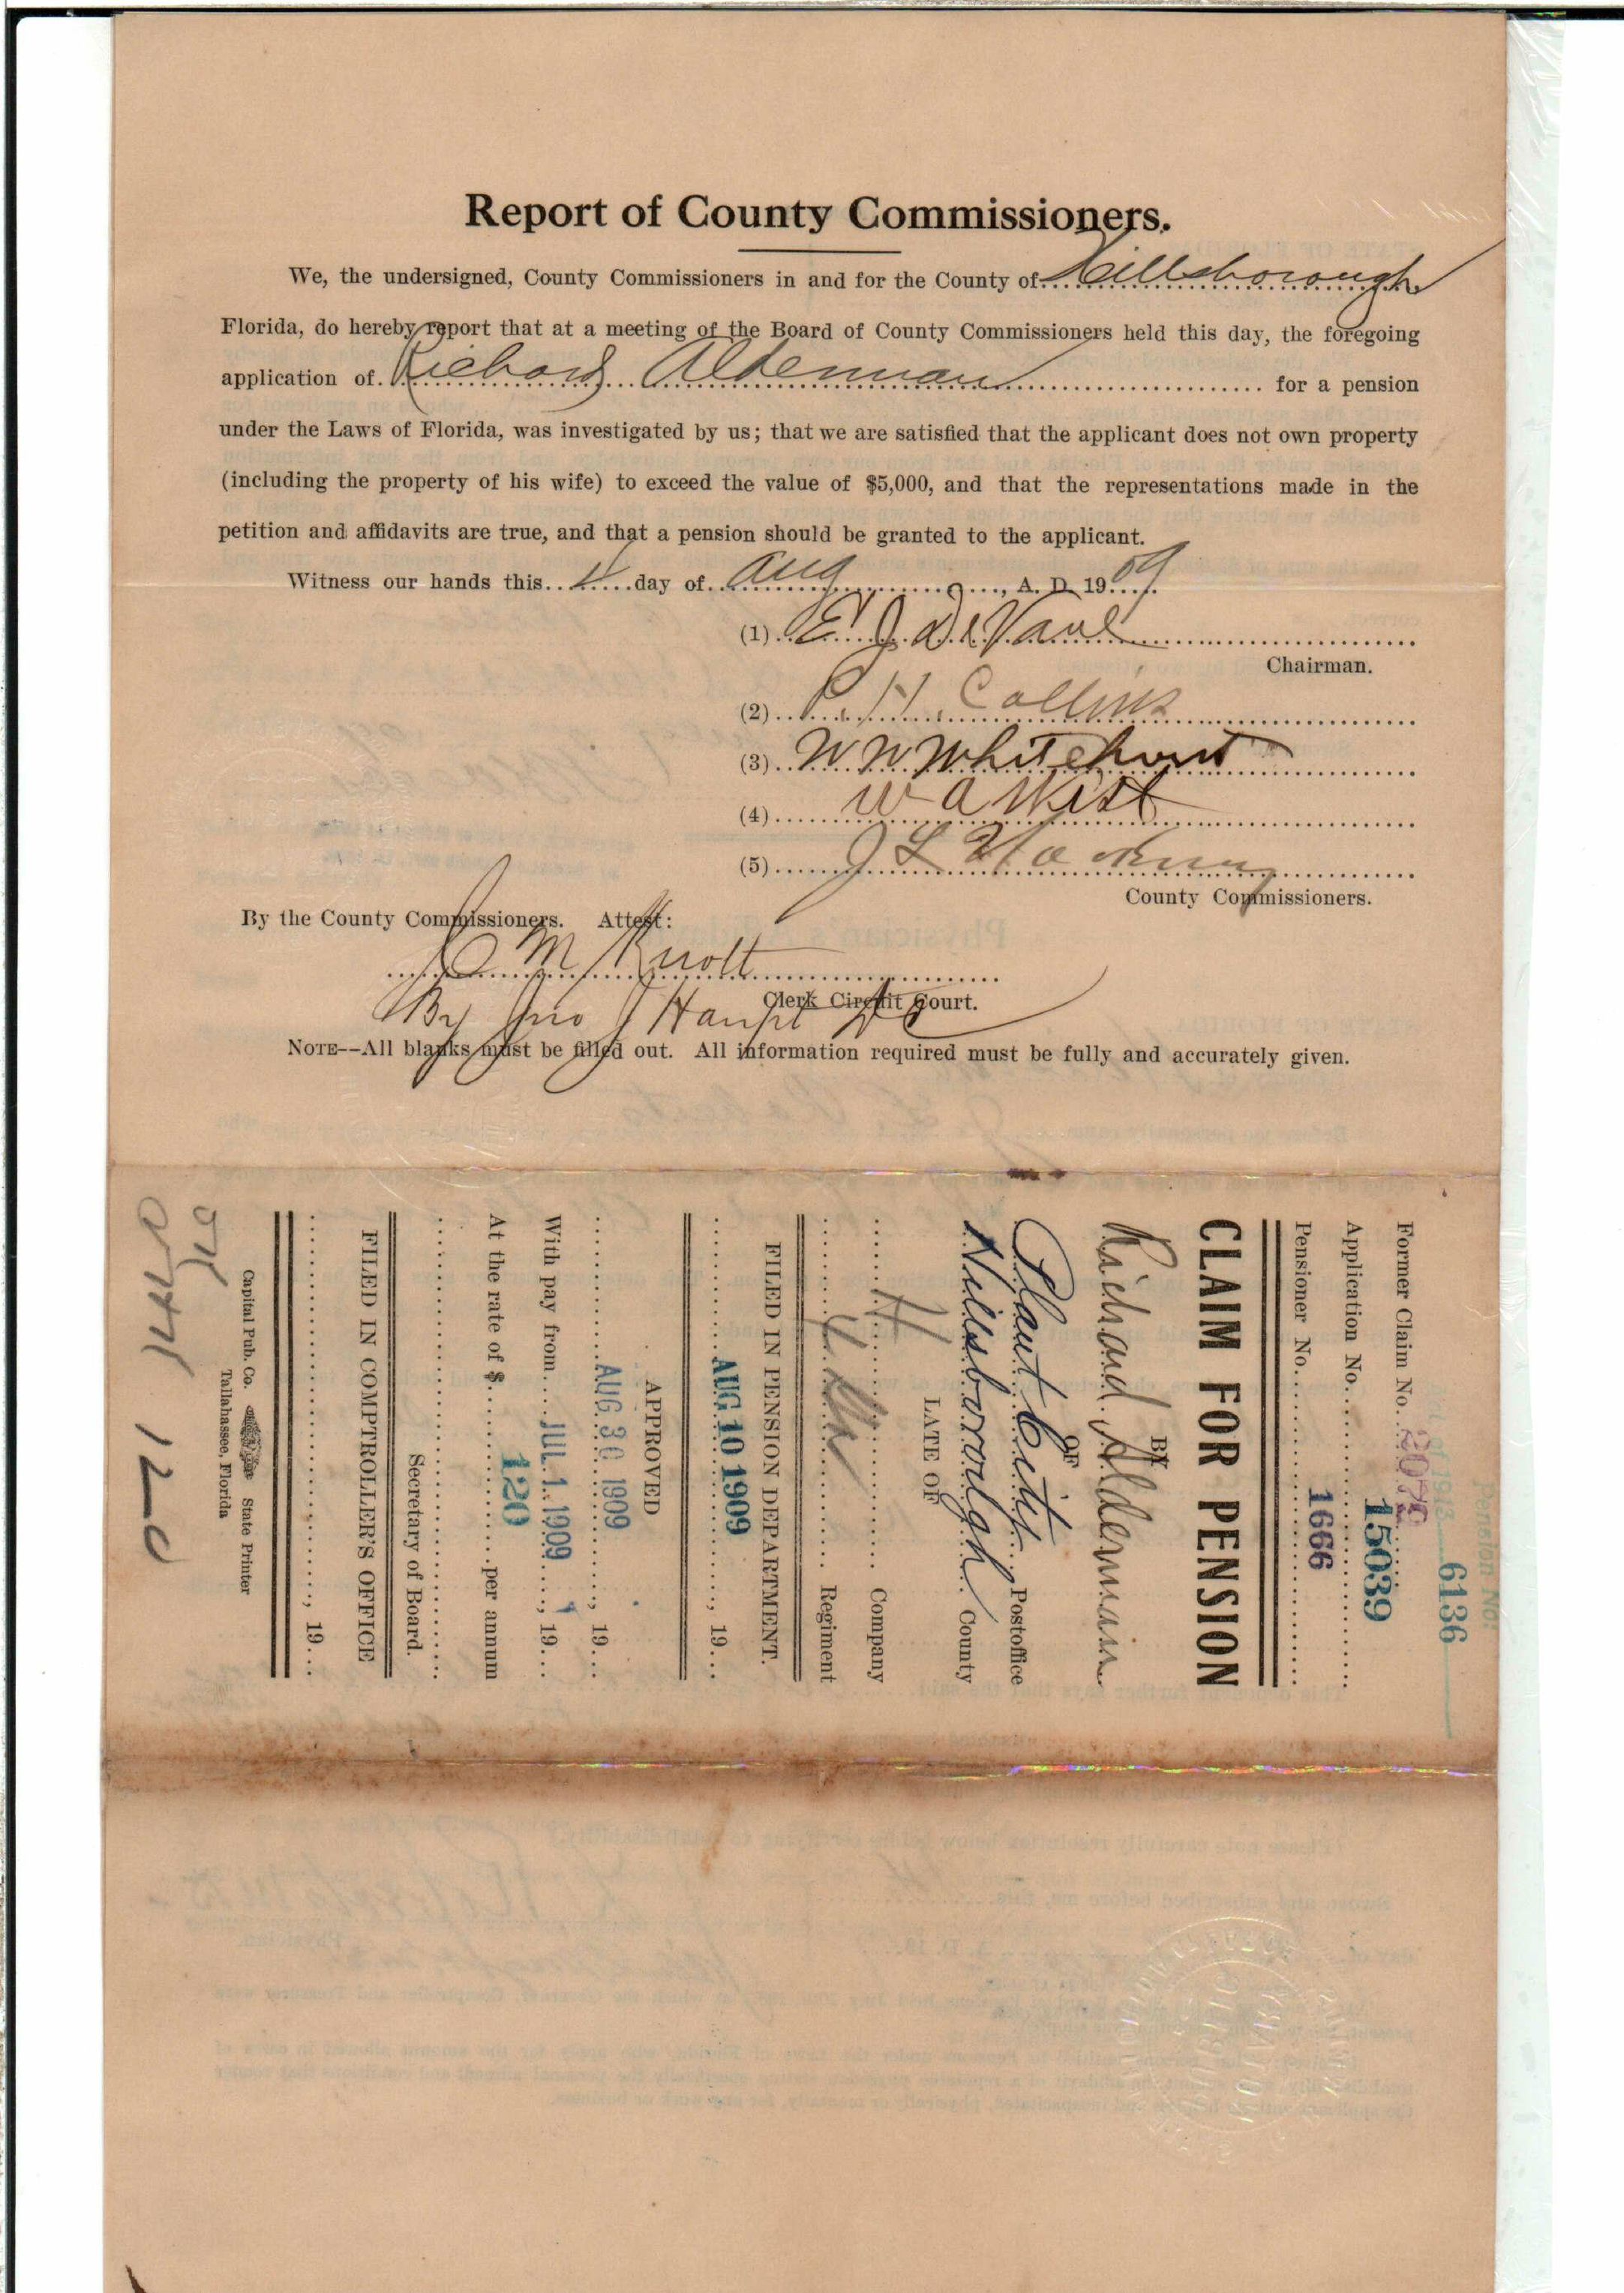 Report of County Commissioners.
We, the undersigned, County Commissioners in and for the County of Hillsborough
Florida, do hereby report that at a meeting of the Board of County Commissioners held this day, the foregoing
application of Richard Alderman for a pension
under the Laws of Florida, was investigated by us; that we are satisfied that the applicant does not own property
(including the property of his wife) to exceed the value of $5,000, and that the representations made in the
petition and affidavits are true, and that a pension should be granted to the applicant.
Witness our hands this 4 day of Aug, A. D. 1909.
(1) E J DeVane
Chairman.
(2) P. H. Collins
(3) W W Whitehurst
(4) W A West
(5) J L
County Commissioners.
By the County Commissioners. Attest:
M Knott
Clerk Circuit Court.
By Jno Haupt DC
NOTE--All blanks must be filled out. All information required must be fully and accurately given.
Pension No.
6136
Former Claim No. 2075
Application No. 15039
Pensioner No. 1666
CLAIM FOR PENSION
BY
Richard Alderman
OF
Plant City Postoffice
Hillsborough County
LATE OF
H Company
Regiment
FILED IN PENSION DEPARTMENT.
AUG 10 1909, 19
APPROVED
AUG 30 1909, 19
With pay from JUL 1 1909, 19
At the rate of $ 120 per annum
Secretary of Board.
FILED IN COMPTROLLER'S OFFICE
, 19
Capital Pub. Co. State Printer
Tallahassee, Florida